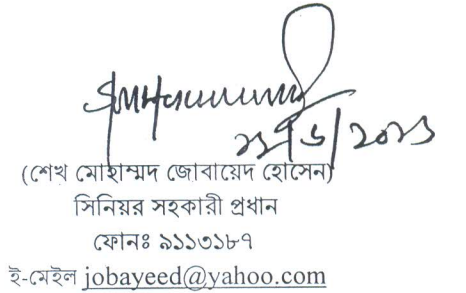 ২১/৬/২০২১
(শেখ মোহাম্মদ জোবায়েদ হোসেন)
সিনিয়র সহকারী প্রধান
ফোনঃ ৯১১৩১৮৭
ই-মেইল jobayeed@yahoo.com